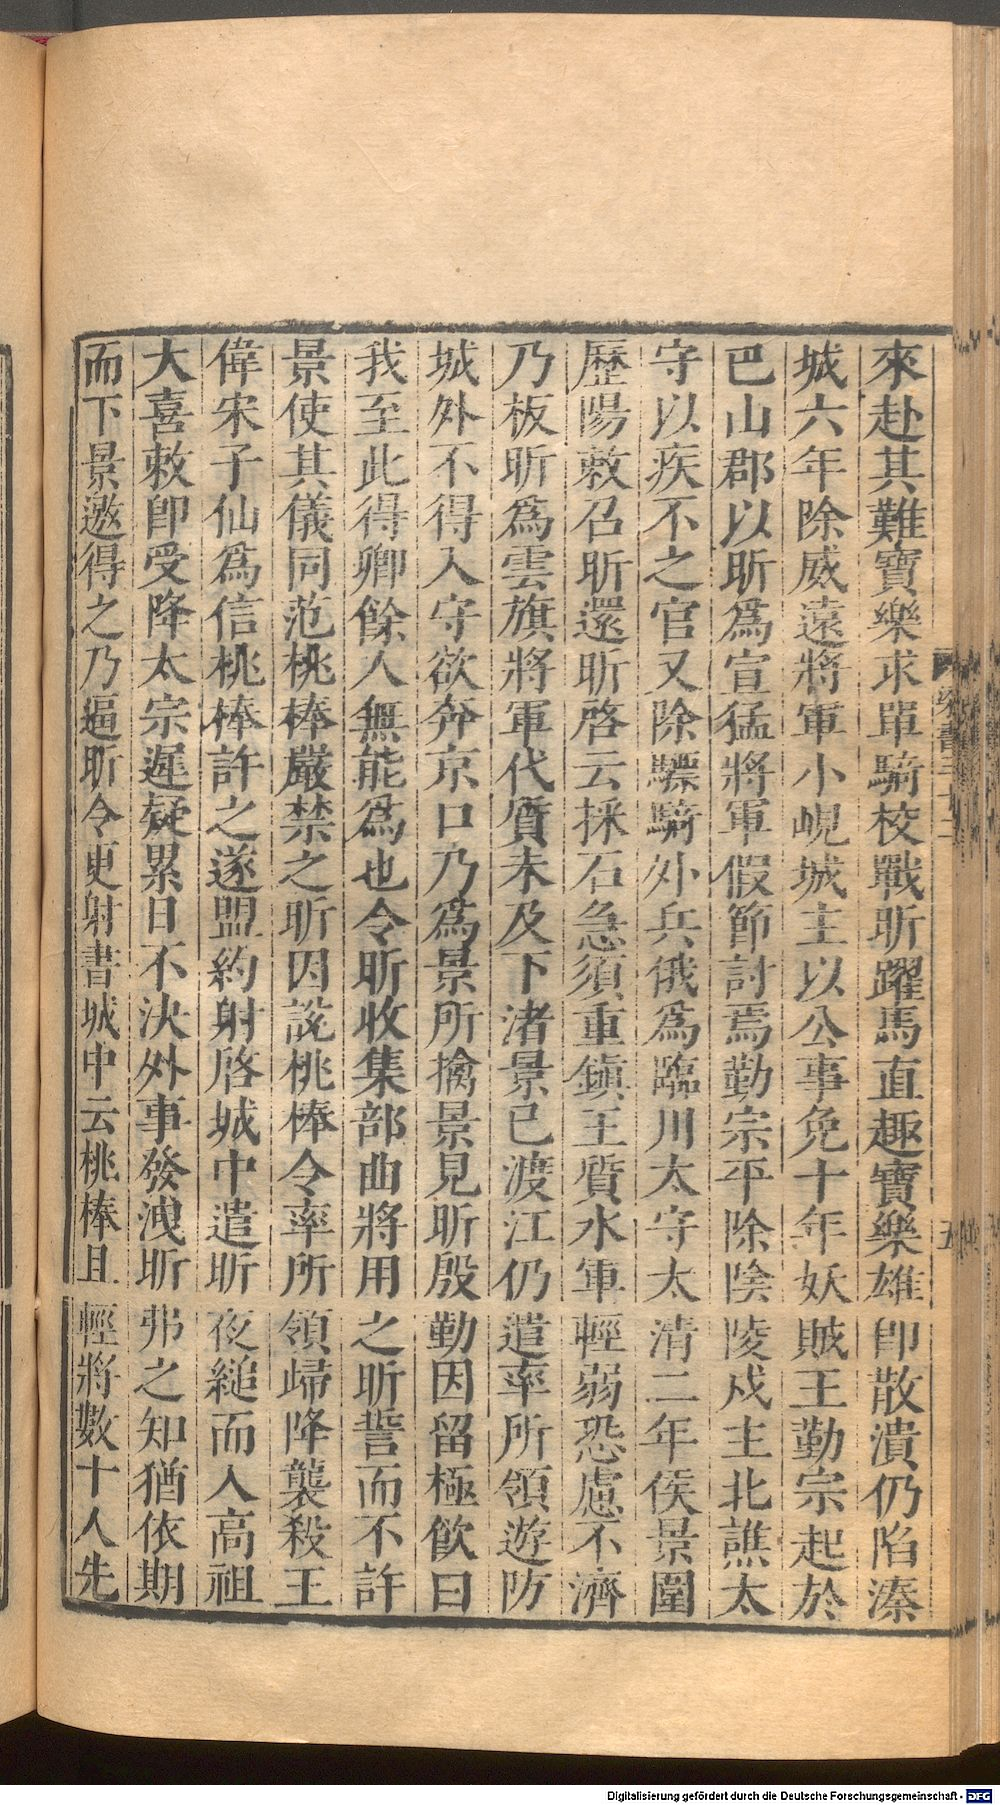 來赴其難寶樂求單騎校戰昕躍馬直趣寶樂雄即散潰仍陷溱
城六年除威遠將軍小峴城主以公事免十年妖賊王勤宗起於
巴山郡以昕爲宣猛將軍假節討焉勤宗平除陰陵戍主北譙太
守以疾不之官又除驃騎外兵俄爲臨川太守太清二年侯景圍
歷陽敕召昕還昕啓云採石急須重鎭王質水軍輕弱恐慮不濟
乃板昕爲雲旗將軍代質未及下渚景已渡江仍遣率所領遊防
城外不得入守欲奔京口乃爲景所擒景見昕殷勤因留極飮曰
我至此得卿餘人無能爲也令昕收集部曲將用之昕誓而不許
景使其儀同范桃棒嚴禁之昕因說桃棒令率所領歸降襲殺王
偉宋子仙爲信桃棒許之遂盟約射啓城中遣昕夜縋而入高祖
大喜敕卽受降太宗遲疑累日不決外事發洩昕弗之知猶依期
而下景邀得之乃逼昕令更射書城中云桃棒且輕將數十人先
梁書三十二
五
Digitalisierung gefördert durch die Deutsche Forschungsgemeinschaft - DFG